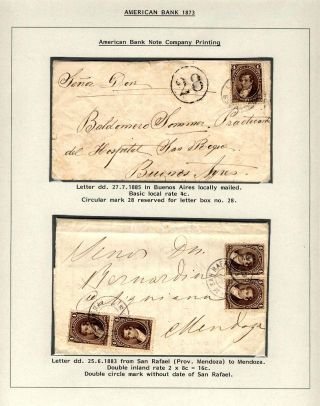 AMERICAN BANK 1873
American Bank Note Company Printing
Señor Don
28
Baldomero Sommer, Practicante
del Hospital San Roque
Buenos Ayres
Letter dd. 27.7.1885 in Buenos Aires locally mailed.
Basic local rate 4c.
Circular mark 28 reserved for letter box no. 28.
Senor Don
Bernardin
Mendoza
Letter dd. 25.6.1883 from San Rafael (Prov. Mendoza) to Mendoza.
Double inland rate 2 x 8c = 16c.
Double circle mark without date of San Rafael.